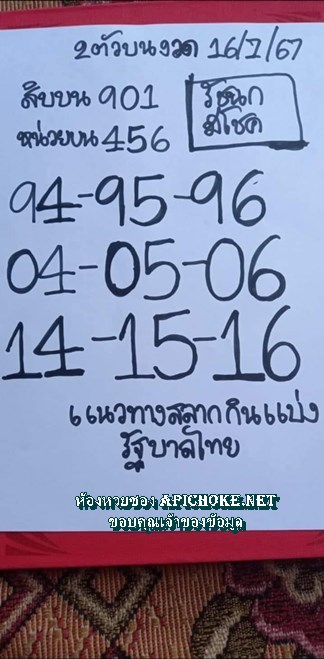 2ตัวบนงวด 16/7/67
สิบบน 901
หน่วยบน 456
รัชนก
มีโชค
94-95-96
04-05-06
14-15-16
แนวทางสลากกินแบ่ง
รัฐบาลไทย
ห้องหวยซอง APICHOKE.NET
ขอบคุณเจ้าของข้อมูล